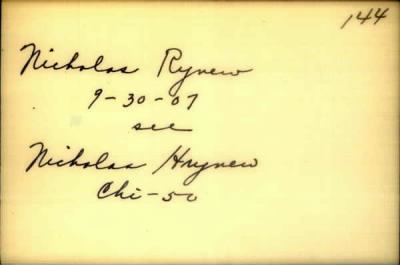 144
Nicholas Rynew
9-30-07
see
Nicholas Hrynew
Chi-50